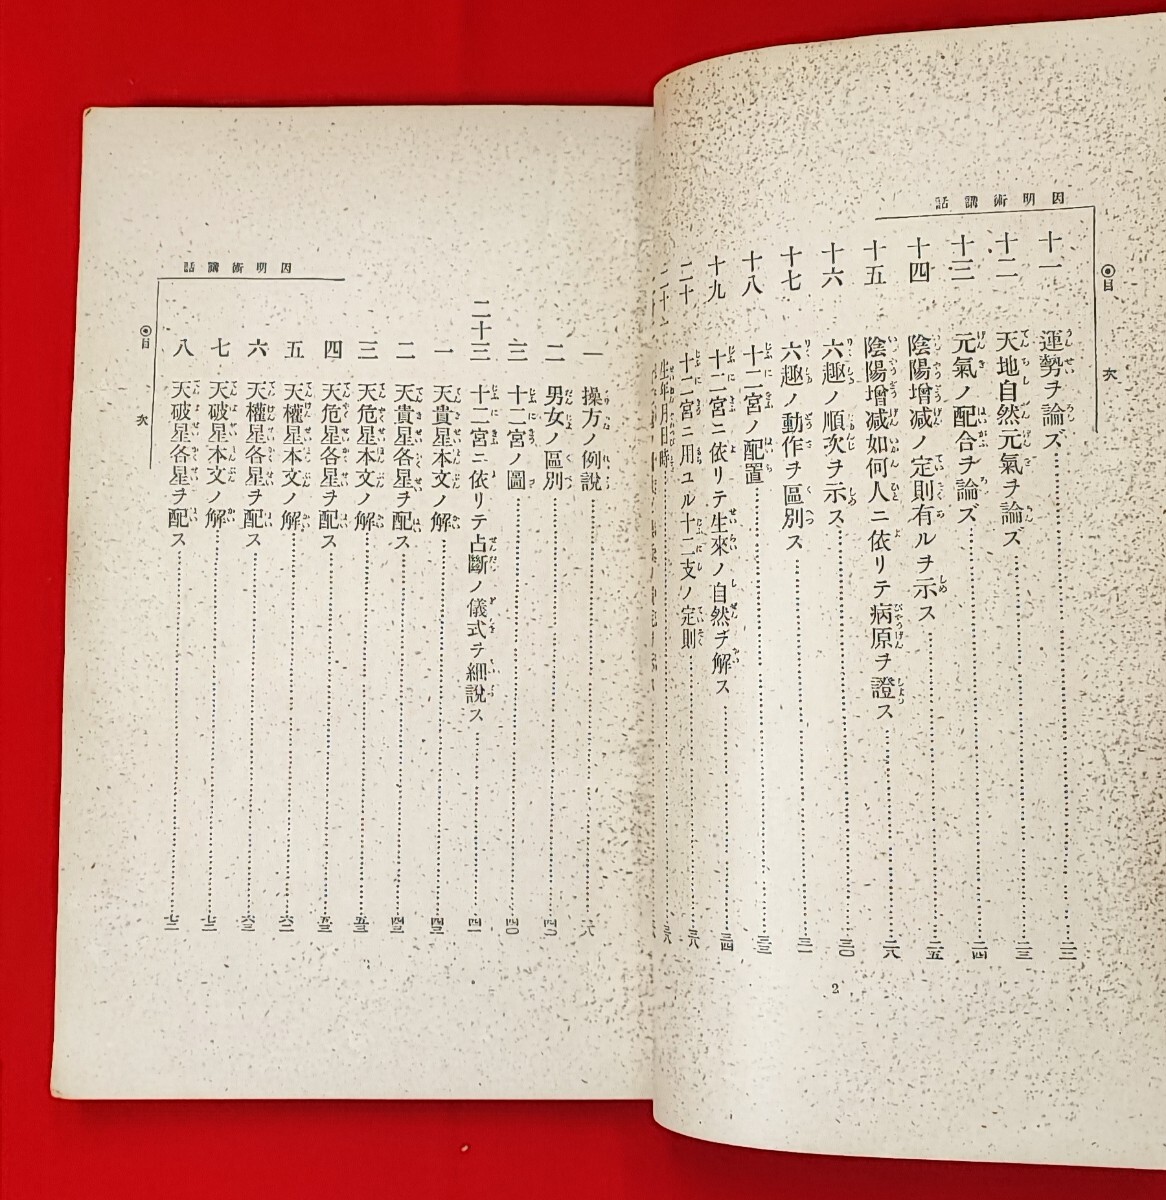 因明術講話
◉目次
十一 運勢ヲ論ズ 二二
十二 天地自然元氣ヲ論ズ 二三
十三 元氣ノ配合ヲ論ズ 二四
十四 陰陽增減ノ定則有ルヲ示ス 二五
十五 陰陽增減如何人ニ依リテ病原ヲ證ス 二八
十六 六趣ノ順次ヲ示ス 三〇
十七 六趣ノ動作ヲ區別ス 三一
十八 十二宮ノ配置 三三
十九 十二宮ニ依リテ生來ノ自然ヲ解ス 三四
二十 十二宮ニ用ユル十二支ノ定則 三六
二十一 生年月日時
2
一 操方ノ例說
二 男女ノ區別 四〇
三 十二宮ノ圖 四〇
二十三 十二宮ニ依リテ占斷ノ儀式ヲ細說ス 四一
一 天貴星本文ノ解 四三
二 天貴星各星ヲ配ス 四三
三 天危星本文ノ解 五三
四 天危星各星ヲ配ス 五三
五 天權星本文ノ解 六二
六 天權星各星ヲ配ス 六三
七 天破星本文ノ解 七三
八 天破星各星ヲ配ス 七三
因明術講話
◉目次